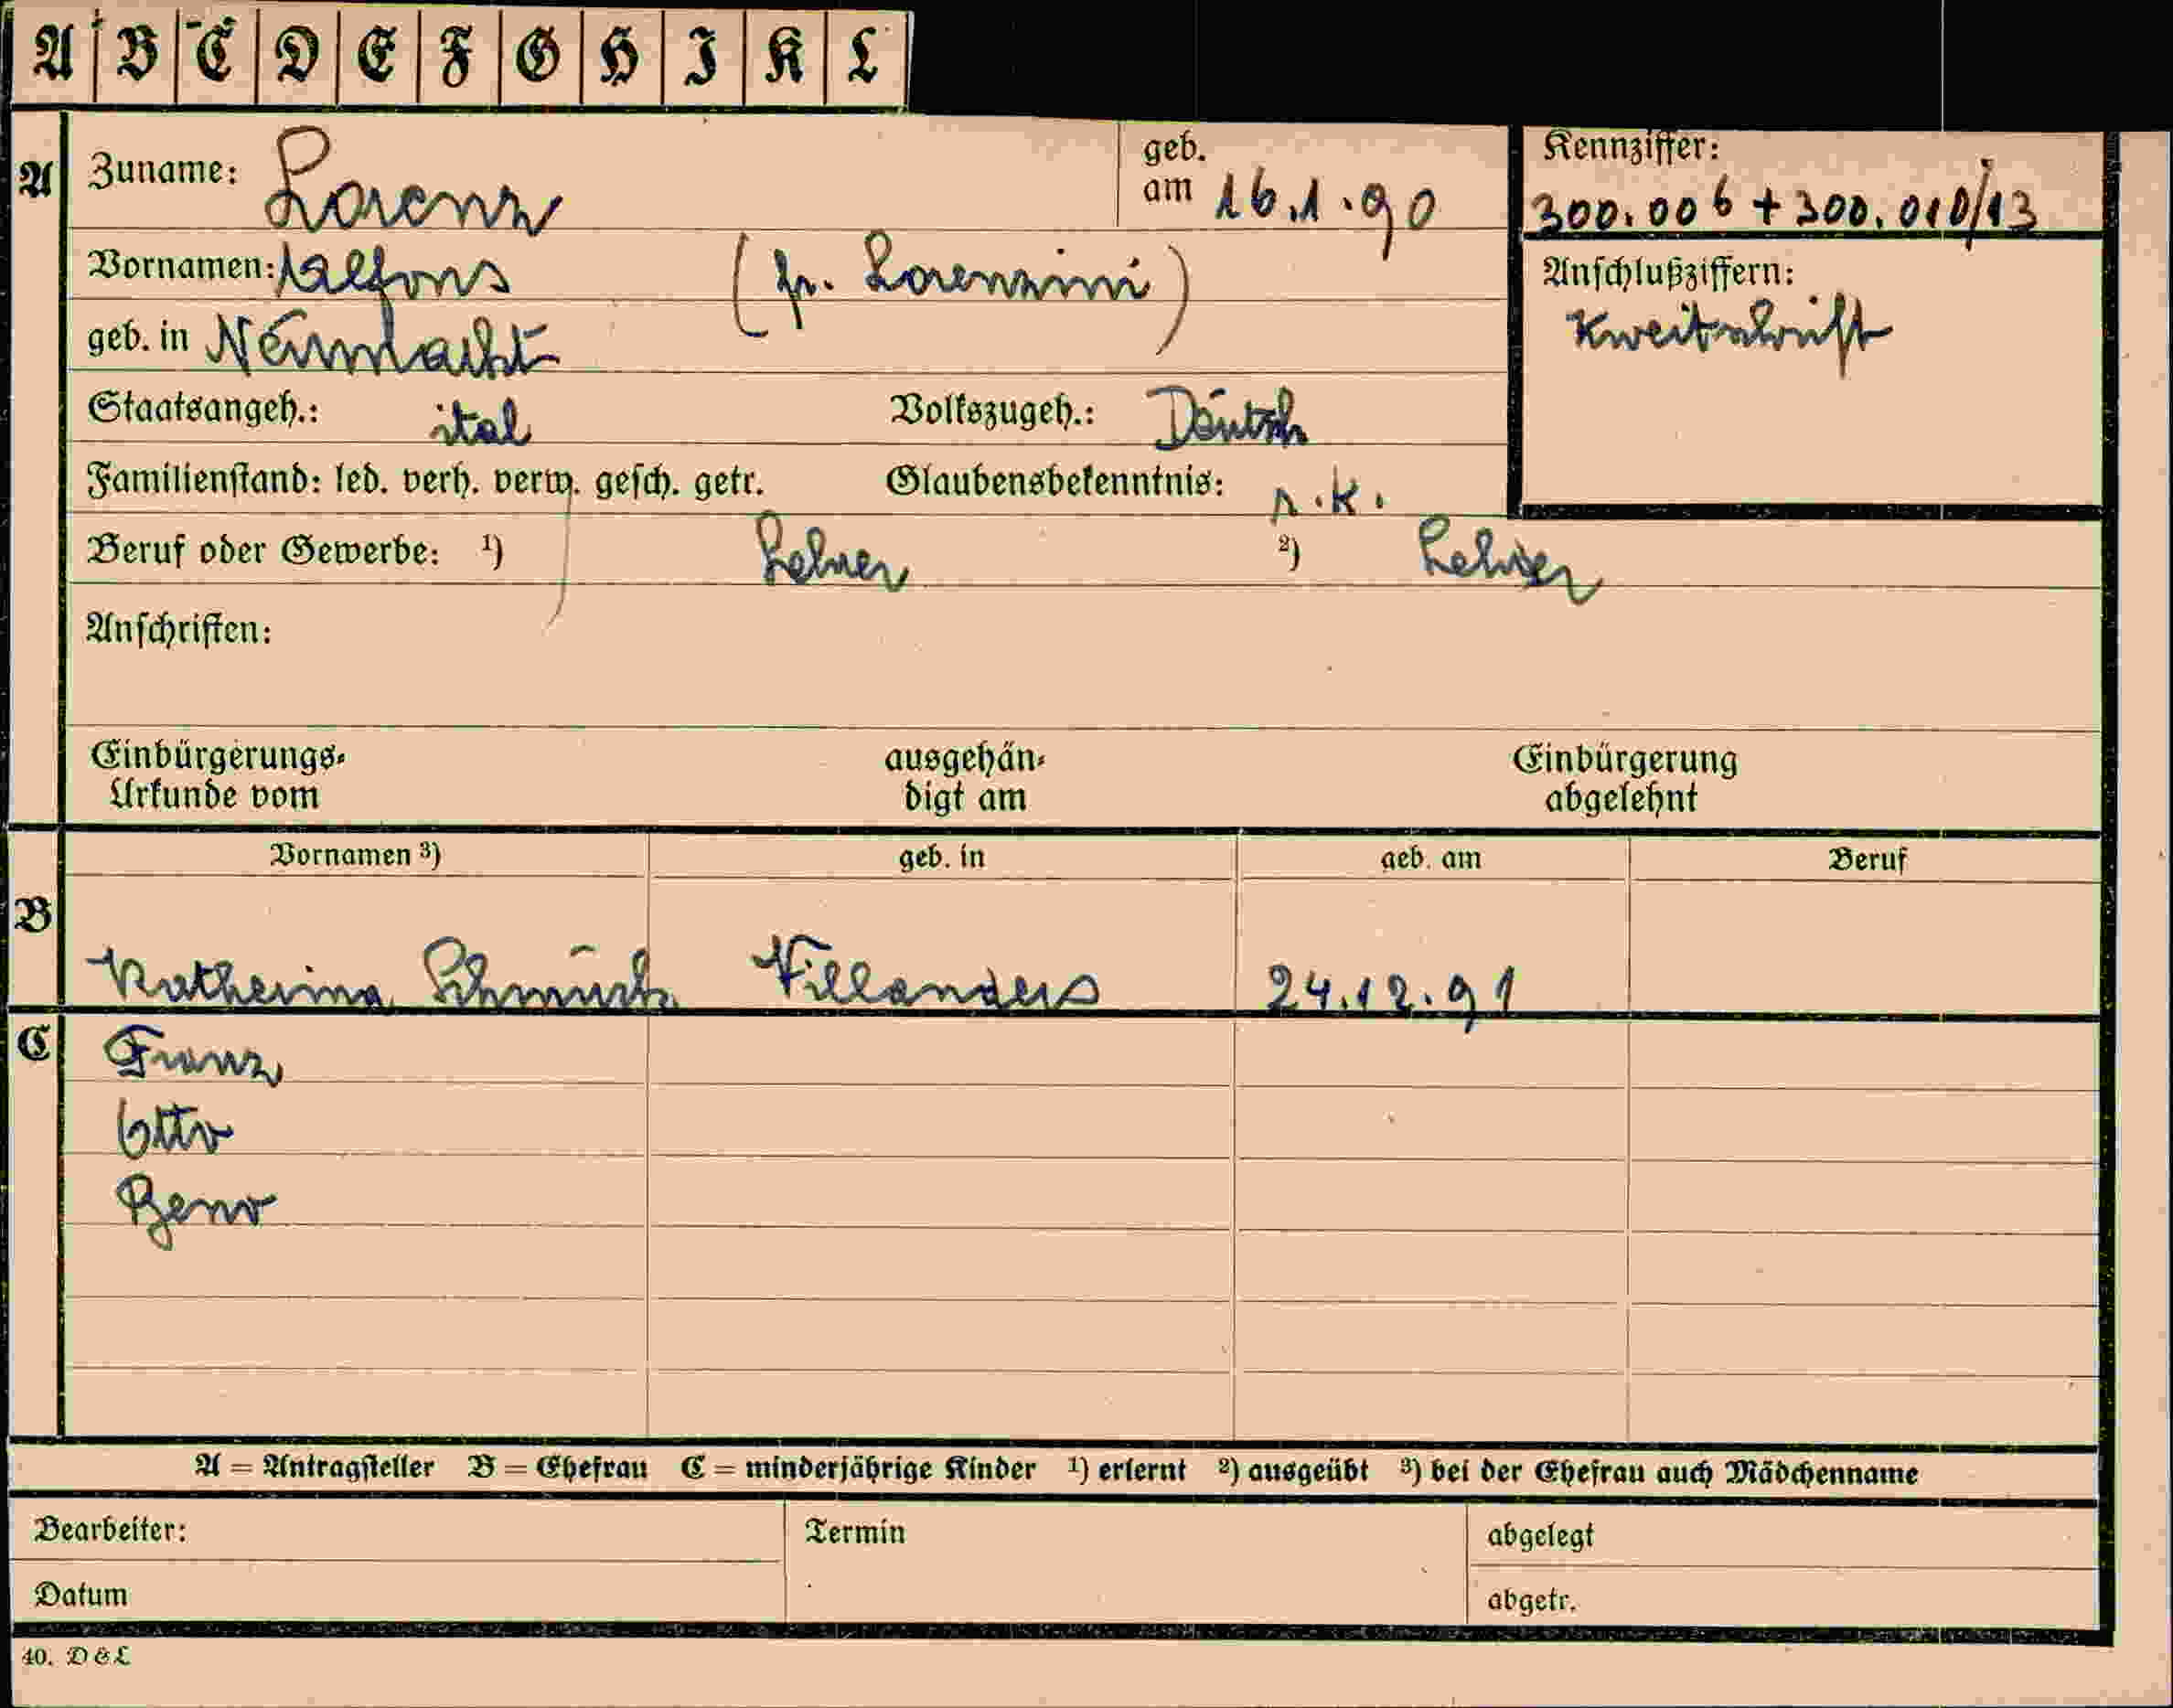 A B C D E F G H I K L
A
Zuname: Lorenz
geb. am 16.1.90
Kennziffer:
300.006 + 300.010/13
Vornamen: Alfons (fr. Lorenzini)
Anschlußziffern:
Zweitschrift
geb. in Neumarkt
Staatsangeh.: ital Volkszugeh.: Deutsch
Familienstand: led. verh. verw. gesch. getr. Glaubensbekenntnis: r.k.
Beruf oder Gewerbe: 1) Lehrer 2) Lehrer
Anschriften:
Einbürgerungs-Urkunde vom
ausgehän-digt am
Einbürgerung abgelehnt
Vornamen 3) geb. in geb. am Beruf
B
Katherina Villanders 24.12.91
C
Franz
Otto
Beno
A = Antragsteller B = Ehefrau C = minderjährige Kinder 1) erlernt 2) ausgeübt 3) bei der Ehefrau auch Mädchenname
Bearbeiter: Termin abgelegt
Datum abgetr.
40. D & L